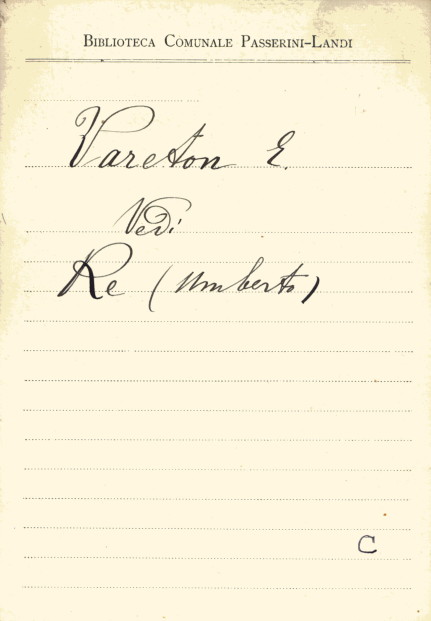 Biblioteca Comunale Passerini-Landi
Vareton E.
Vedi
Re (Umberto)
C